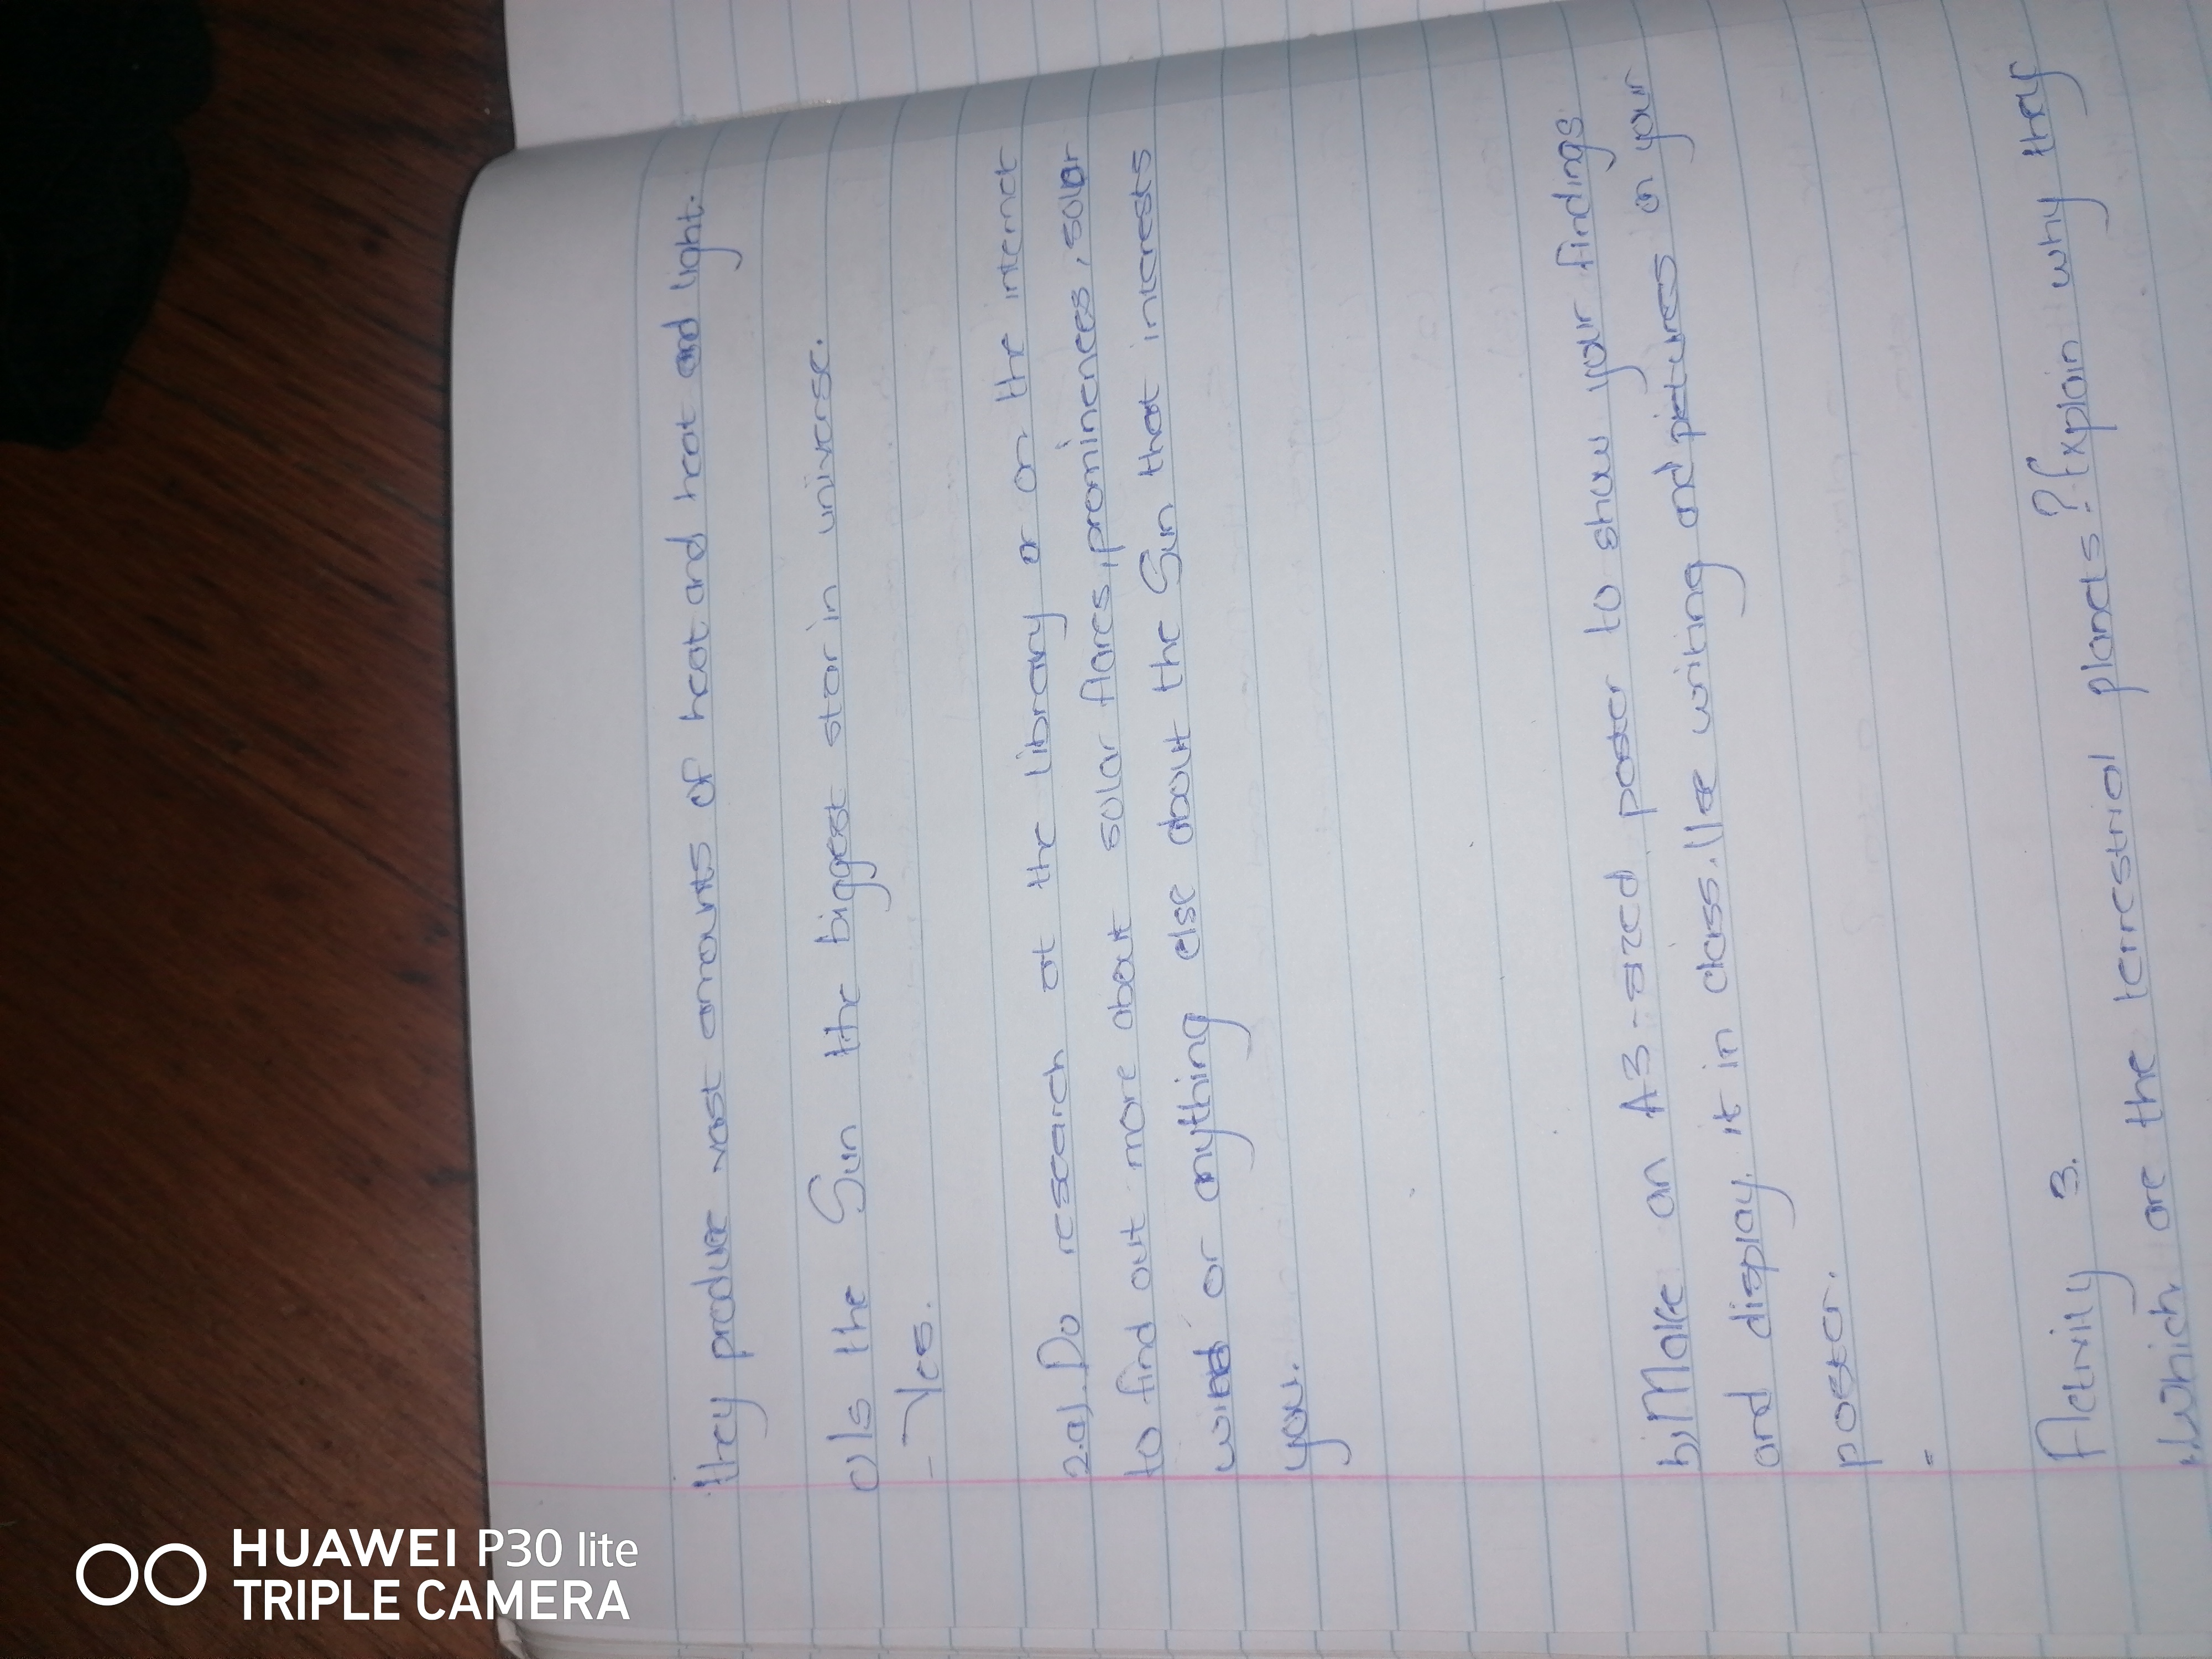 they produce vast amounts of heat and heat and light.
c) Is the Sun the biggest star in universe.
- Yes.
2.a). Do research at the library or on the internet
to find out more about solar flares, prominences, solar
wind or anything else about the Sun that interests
you.
b) Make an A3-sized poster to show your findings
and display it in class. Use writing and pictures on your
poster.
=
Activity 3.
1. Which are the terrestrial planets? Explain why they
HUAWEI P30 lite
TRIPLE CAMERA